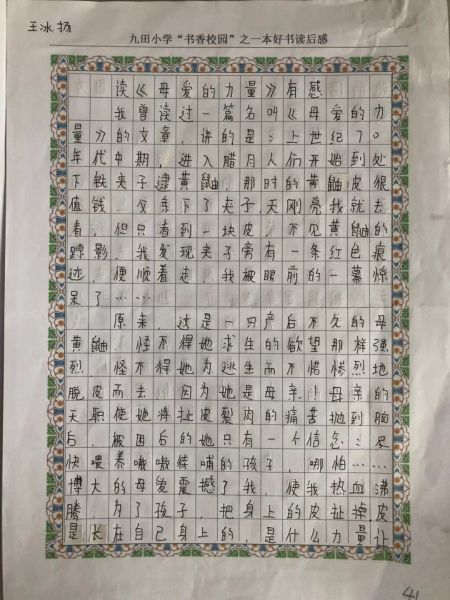 王冰扬
九田小学“书香校园”之一本好书读后感
读《母爱的力量》有感
我曾读过一篇名叫《母爱的力
量》的文章，讲的是：上世纪70
年代中期，进入腊月人们开始到处
下铁夹子逮黄鼬，那时的黄鼬皮很
值钱，父亲下了夹子，天刚亮我就去
看，但只看到一块皮，不见黄鼬的
踪影，我发现夹子旁有一条红色痕
迹，便顺着走，我被眼前的一幕惊
呆了……
原来，这是一只产后不久的母
黄鼬，怪不得她求生的欲望那样强
烈，怪不得她为逃生而不惜惨烈地
脱皮而去，因为她是母亲！母亲的
天职使她将扯皮裂肉的痛苦抛到脑
后，被困后的她只有一个信念：尽
快喂养嗷嗷待哺的孩子，哪怕……
博大的母爱震撼了我，使我热血沸
腾，为了孩子，把身上的皮扯掉皮
是长在自己身上的，是什么力量让
41